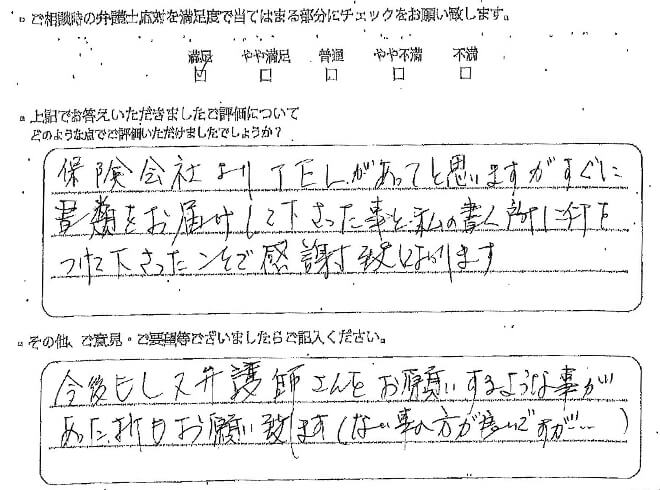 ご相談時の弁護士応対を満足度で当てはまる部分にチェックをお願い致します。
満足 やや満足 普通 やや不満 不満
☑ □ □ □ □
上記でお答えいただきましたご評価について
どのような点でご評価いただけましたでしょうか?
保険会社よりTELがあってと思いますがすぐに
書類をお届けして下さった事と私の書く所に印を
つけて下さったことで感謝致しております
その他、ご意見・ご要望等ございましたらご記入ください。
今後もし又弁護師さんをお願いするような事が
あった折もお願い致します(ない事の方が良いですが…)